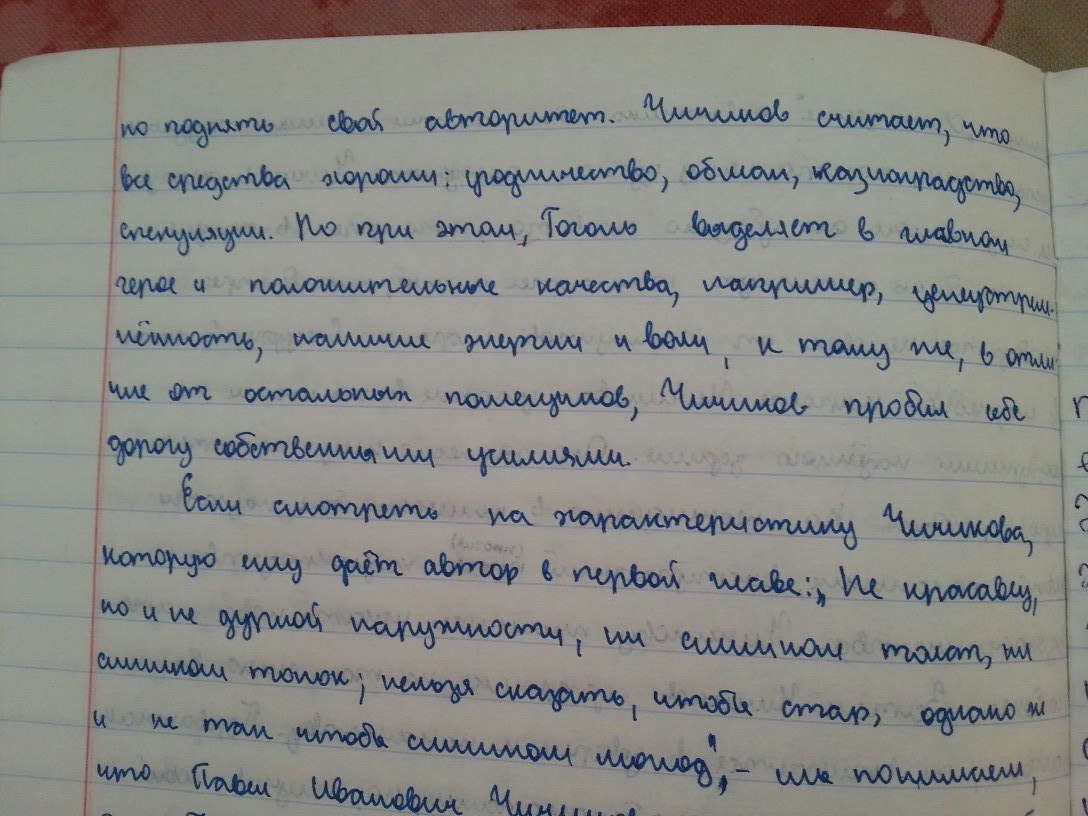 но поднять свой авторитет. Чичиков считает, что
все средства хороши: угодничество, обман, казнокрадство,
спекуляции. Но при этом, Гоголь выделяет в главном
герое и положительные качества, например, целеустрем-
лённость, наличие энергии и воли, к тому же, в отли-
чие от остальных помещиков, Чичиков пробил себе
дорогу собственными усилиями.
Если смотреть на характеристику Чичикова,
которую ему даёт автор в первой главе: „Не красавец,
но и не дурной наружности, ни слишком толст, ни
слишком тонок; нельзя сказать, чтобы стар, однако ж
и не так чтобы слишком молод", - мы понимаем,
что Павел Иванович Чичиков